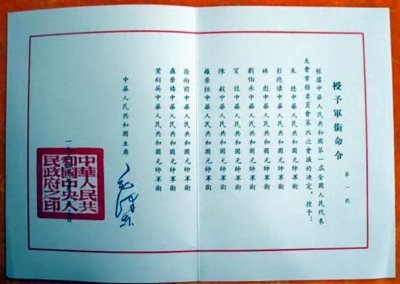 授予軍銜命令
第一號
根據中華人民共和國第一屆全國人民代表
大會常務委員會第六次會議的決定,授予:
朱 德中華人民共和國元帥軍銜
彭德懷中華人民共和國元帥軍銜
林 彪中華人民共和國元帥軍銜
劉伯承中華人民共和國元帥軍銜
賀 龍中華人民共和國元帥軍銜
陳 毅中華人民共和國元帥軍銜
羅榮桓中華人民共和國元帥軍銜
徐向前中華人民共和國元帥軍銜
聶榮臻中華人民共和國元帥軍銜
葉劍英中華人民共和國元帥軍銜
中華人民共和國主席
毛澤東
中華人民共
和國中央人
民政府之印